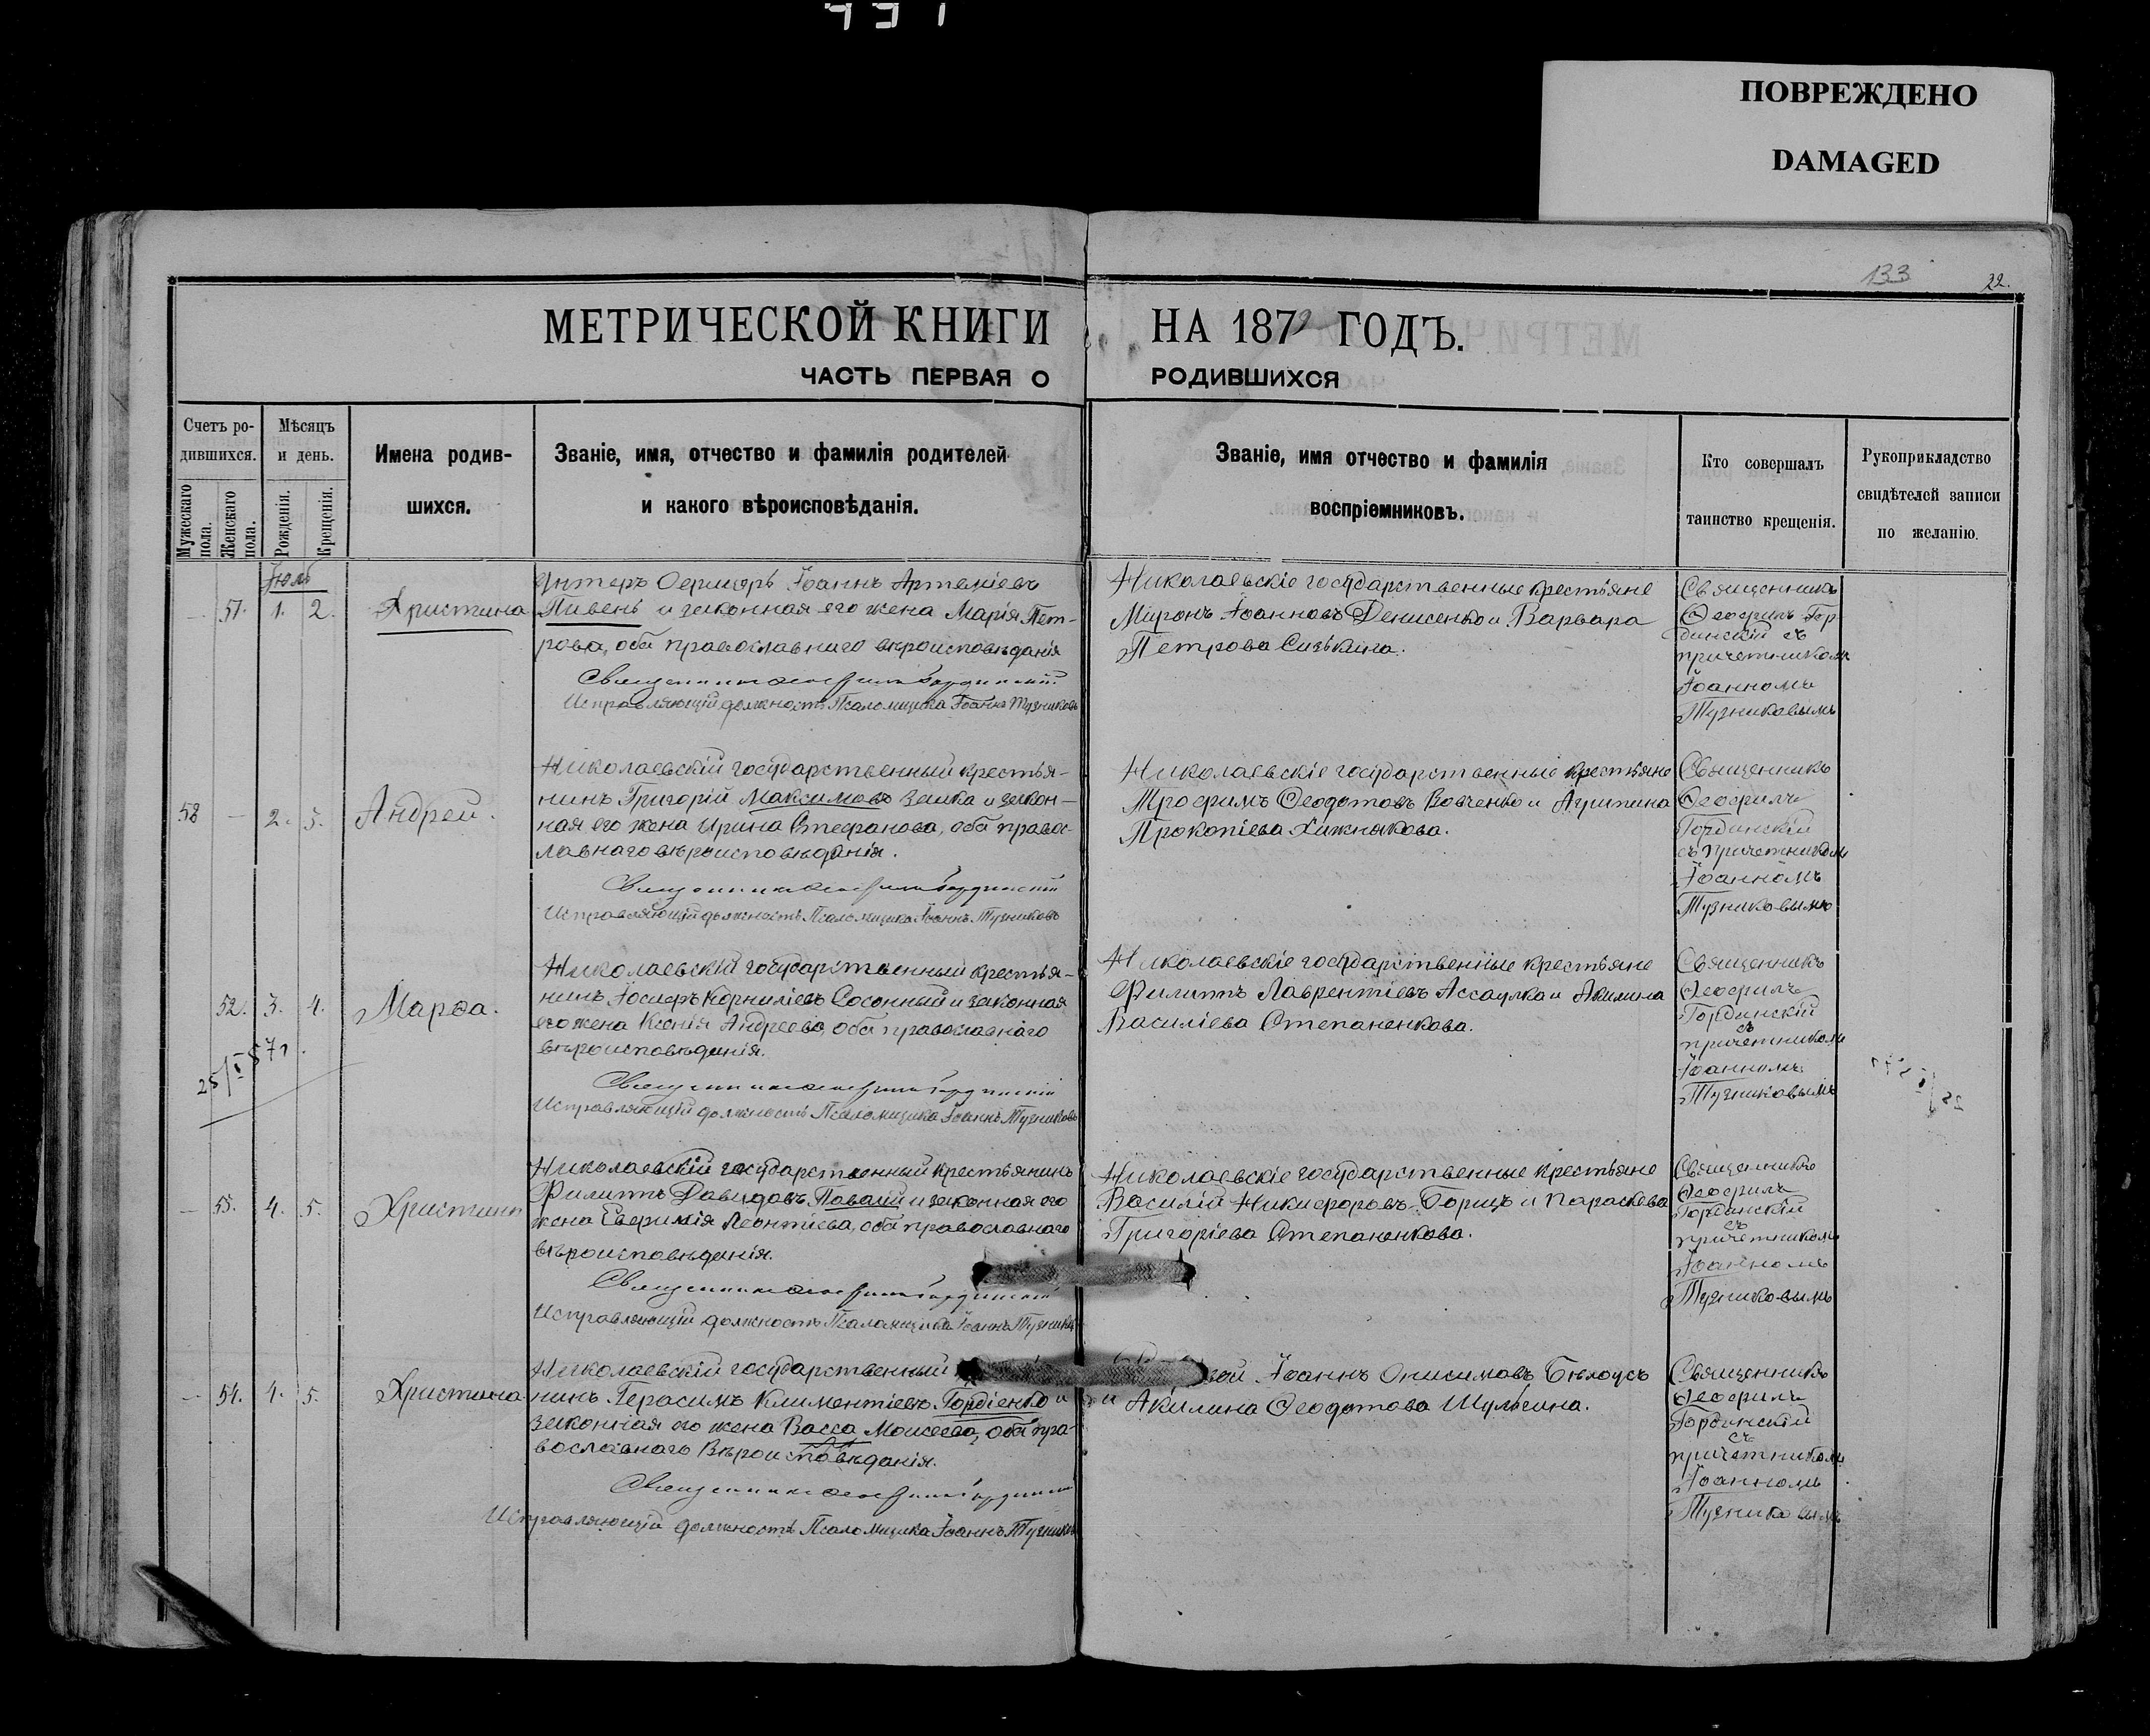 ПОВРЕЖДЕНО
DAMAGED
133
22.
МЕТРИЧЕСКОЙ КНИГИ НА 1879 ГОДЪ.
ЧАСТЬ ПЕРВАЯ О РОДИВШИХСЯ
Счетъ ро-
дившихся.
Мужескаго пола.
Женскаго пола.
Мѣсяцъ
и день.
Рожденія.
Крещенія.
Имена родив-
шихся.
Званіе, имя, отчество и фамилія родителей
и какого вѣроисповѣданія.
Званіе, имя отчество и фамилія
воспріемниковъ.
Кто совершалъ
таинство крещенія.
Рукоприкладство
свидѣтелей записи
по желанію.
Іюль
51. 1. 2. Христина
Унтеръ Офицеръ Іоаннъ Артеміевъ
Пивень и законная его жена Марія Пет-
рова, оба православнаго вѣроисповѣданія
Священникъ Ѳеофилъ Гординскій
Исправляющій должность Псаломщика Іоаннъ Тузниковъ
Николаевскіе государственные крестьяне
Миронъ Іоанновъ Денисенко и Варвара
Петрова
Священникъ
Ѳеофилъ Гор-
динскій съ
причетникомъ
Іоанномъ
Тузниковымъ
58 - 2. 5. Андрей.
Николаевскій государственный крестья-
нинъ Григорій Максимовъ Заика и закон-
ная его жена Ирина Стефанова, оба правос-
лавнаго вѣроисповѣданія.
Священникъ Ѳеофилъ Гординскій
Исправляющій должность Псаломщика Іоаннъ Тузниковъ
Николаевскіе государственные крестьяне
Трофимъ Ѳеодотовъ Вовченко и Агрипина
Прокопіева Хижнякова.
Священникъ
Ѳеофилъ
Гординскій
съ причетникомъ
Іоанномъ
Тузниковымъ
52. 3. 4. Марѳа.
25/I 57 г.
Николаевскій государственный крестья-
нинъ Іосифъ Корниліевъ Сосонный и законная
его жена Ксенія Андреева, оба православнаго
вѣроисповѣданія.
Священникъ Ѳеофилъ Гординскій
Исправляющій должность Псаломщика Іоаннъ Тузниковъ
Николаевскіе государственные крестьяне
Филиппъ Лаврентіевъ Ассаулка и Акилина
Василіева Степаненкова.
Священникъ
Ѳеофилъ
Гординскій
съ
причетникомъ
Іоанномъ
Тузниковымъ
- 53. 4. 5. Христина
Николаевскій государственный крестьянинъ
Филиппъ Давидовъ Повалій и законная его
жена Евфимія Леонтіева, оба православнаго
вѣроисповѣданія.
Священникъ Ѳеофилъ Гординскій
Исправляющій должность Псаломщика Іоаннъ Тузниковъ
Николаевскіе государственные крестьяне
Василій Никифоровъ Борщъ и Параскева
Григоріева Степаненкова.
Священникъ
Ѳеофилъ
Гординскій
съ
причетникомъ
Іоанномъ
Тузниковымъ
- 54. 4. 5. Христина
Николаевскій государственный
нинъ Герасимъ Климентіевъ Гордіенко и
законная его жена Васса Моисеева, оба пра-
вославнаго Вѣроисповѣданія.
Священникъ Ѳеофилъ Гординскій
Исправляющій должность Псаломщика Іоаннъ Тузниковъ
Іоаннъ Онисимовъ Бѣлоусъ
и Акилина Ѳеодотова Шульгина.
Священникъ
Ѳеофилъ
Гординскій
съ
причетникомъ
Іоанномъ
Тузниковымъ